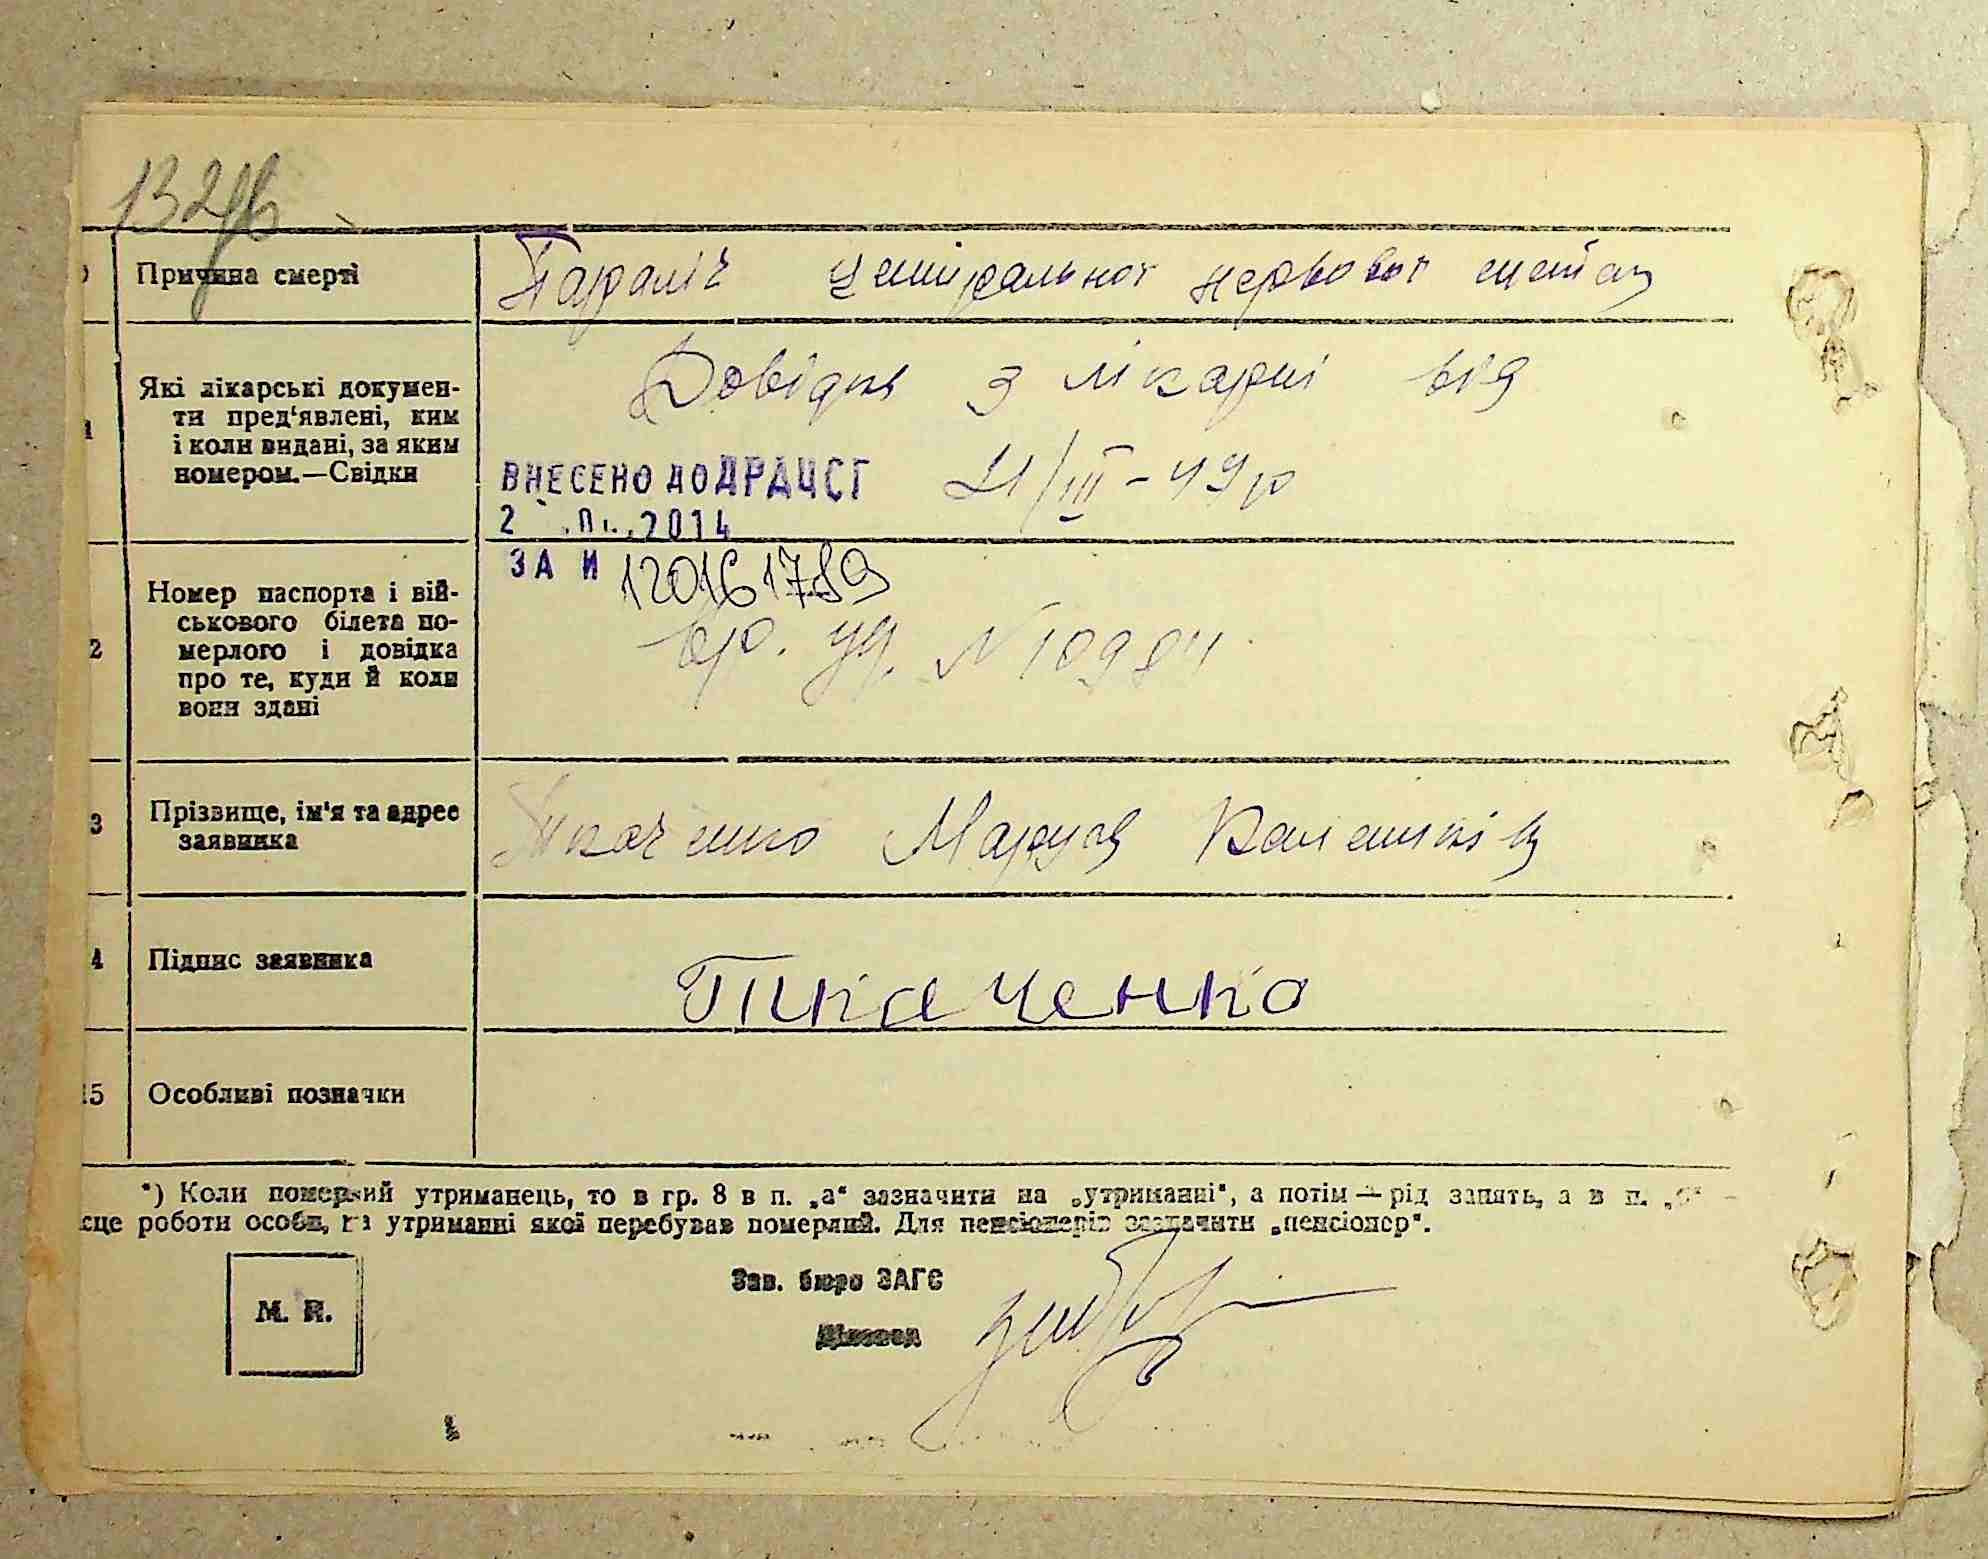 132
Причина смерті
Параліч центральної нервової системи
Які лікарські докумен-
ти пред‘явлені, ким
і коли видані, за яким
номером.—Свідки
Довідка з лікарні від
21/III-49р
ВНЕСЕНО ДО ДРАЦСГ
2014
ЗА И 120161789
2
Номер паспорта і вій-
ськового білета по-
мерлого і довідка
про те, куди й коли
вони здані
вр. уд. N 10984
3
Прізвище, ім'я та адрес
заявника
Ткаченко Маруся
4
Підпис заявника
Ткаченко
15
Особливі позначки
*) Коли померлий утриманець, то в гр. 8 в п. „а“ зазначити на „утриманні“, а потім — рід занять, а в п.
сце роботи особи, на утриманні якої перебував померлий. Для пенсіонерів зазначити „пенсіонер“.
М. П.
Зав. бюро ЗАГС
Діловод